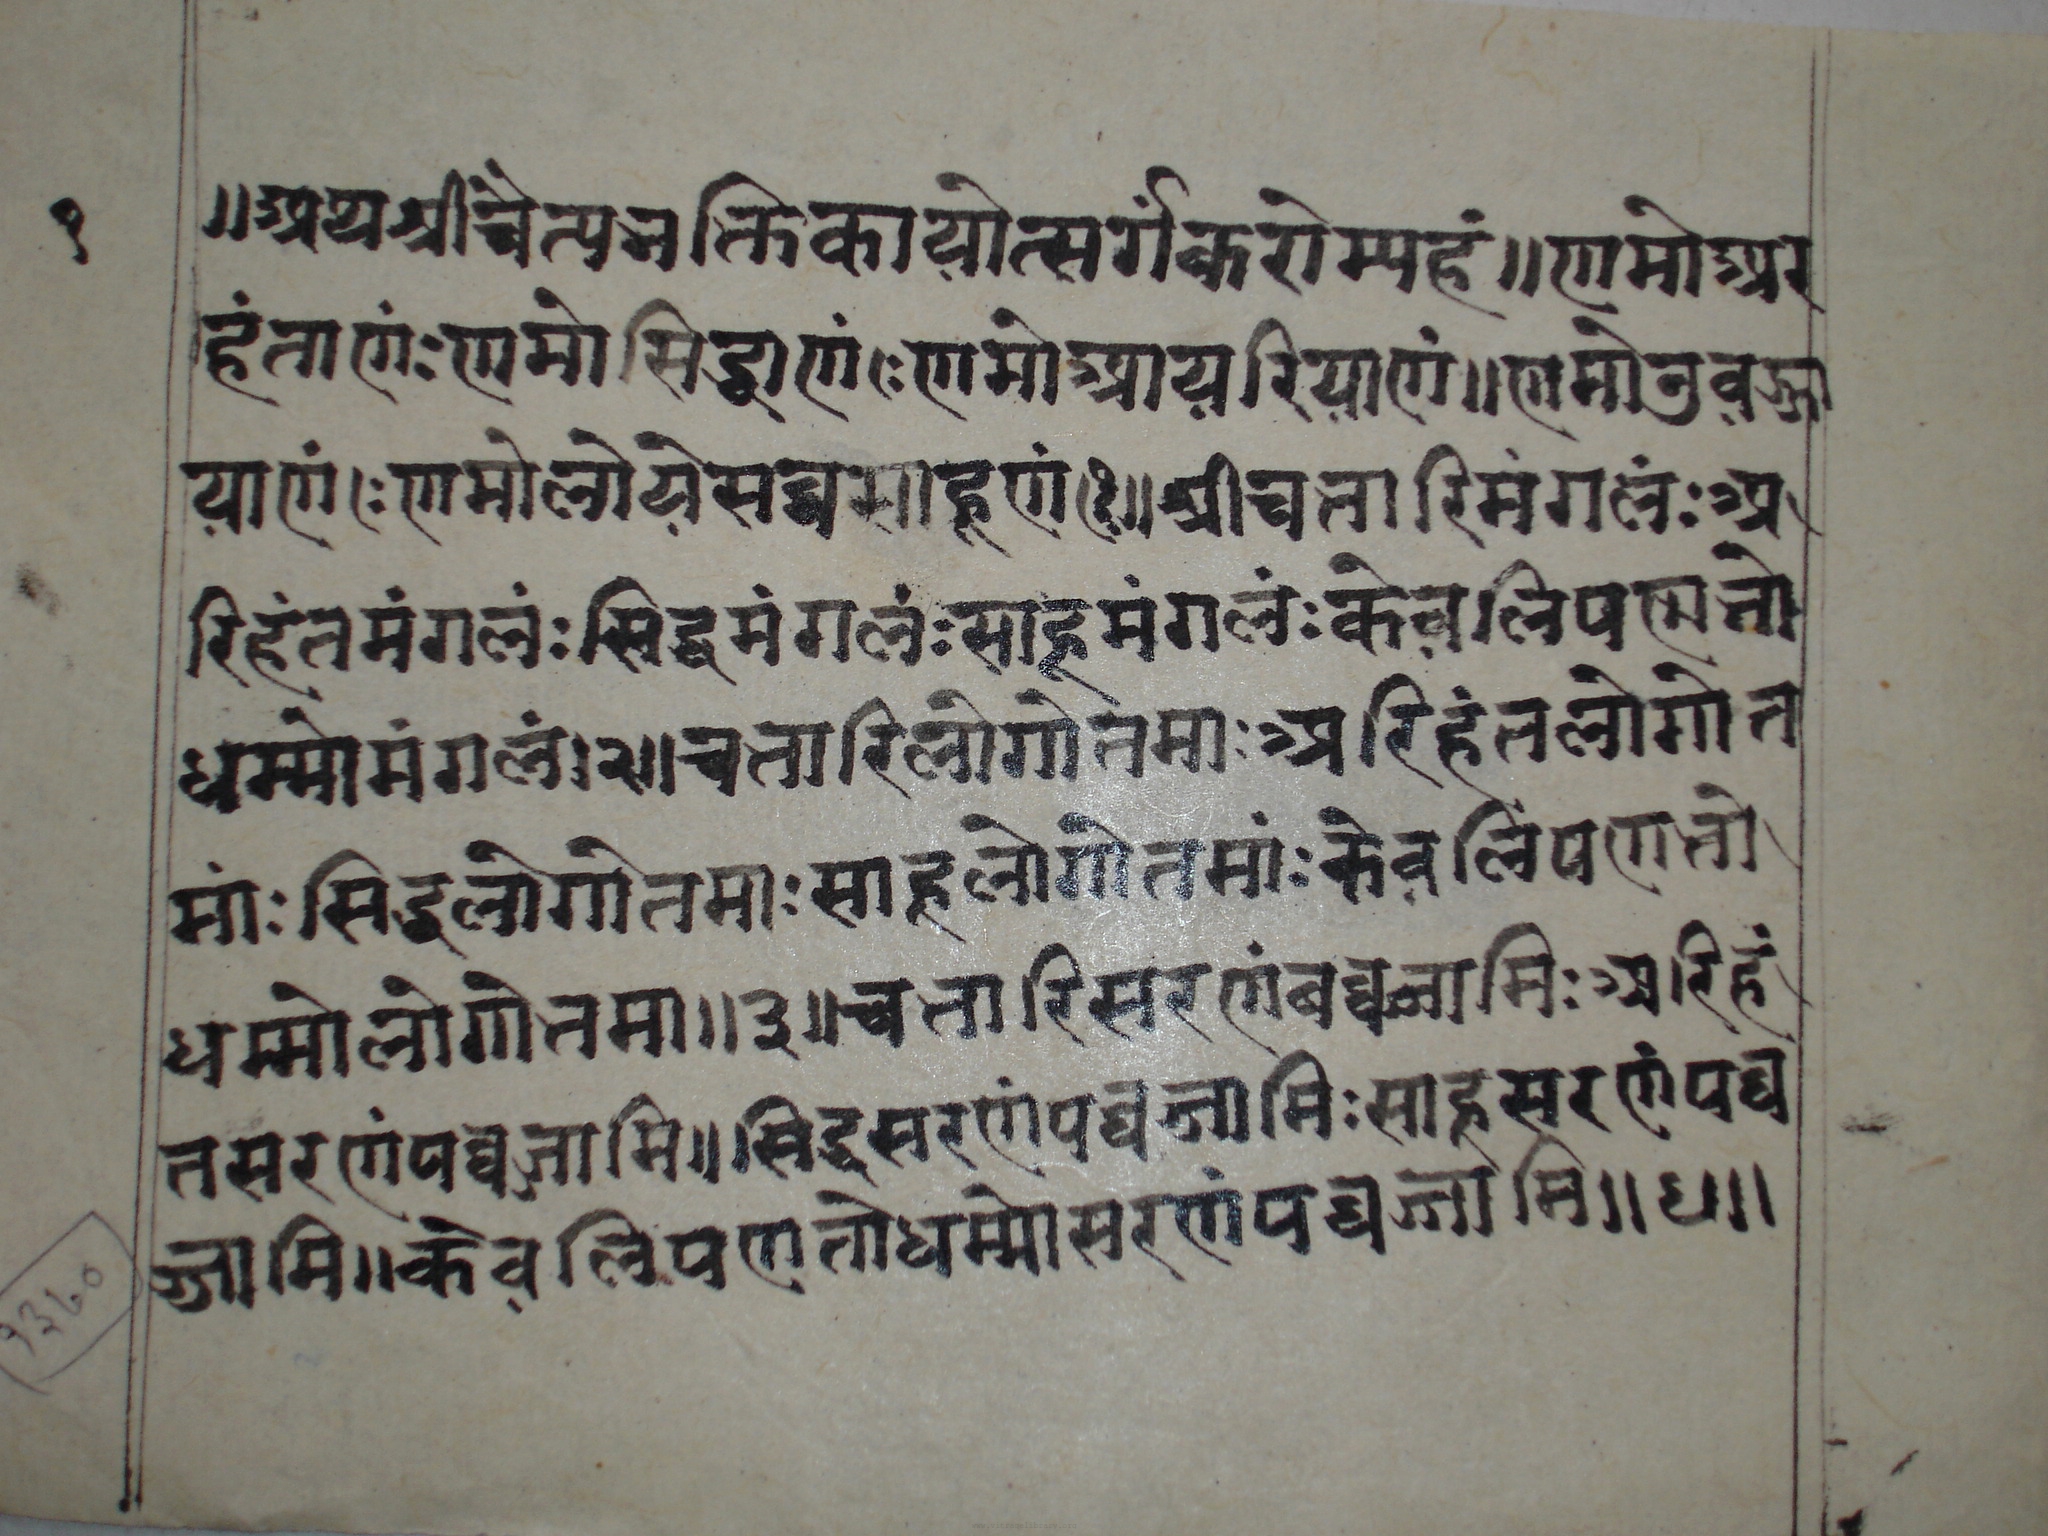 १
॥अथश्रीचैत्यभक्तिकायोत्सर्गंकरोम्यहं॥णमोअर
हंताणं:णमोसिद्धाणं:णमोआयरियाणं॥णमोउवज्झा
याणं:णमोलोयेसव्वसाहूणं॥१॥श्रीचत्तारिमंगलं:अ
रिहंतमंगलं:सिद्धमंगलं:साहूमंगलं:केवलिपण्णत्तो
धम्मोमंगलं॥२॥चत्तारिलोगोत्तमा:अरिहंतलोगोत्त
मां:सिद्धलोगोत्तमा:साहूलोगोत्तमां:केवलिंपणत्तो
धम्मोलोगोत्तमा॥३॥चत्तारिसरणंबव्वज्जामि:अरिहं
तसरणंपव्वज्जामि॥सिद्धसरणंपव्वज्जामि:साहूसरणंपव्व
ज्जामि॥केवलिपणत्तोधम्मोसरणंपव्वज्जामि॥४॥
१३६०